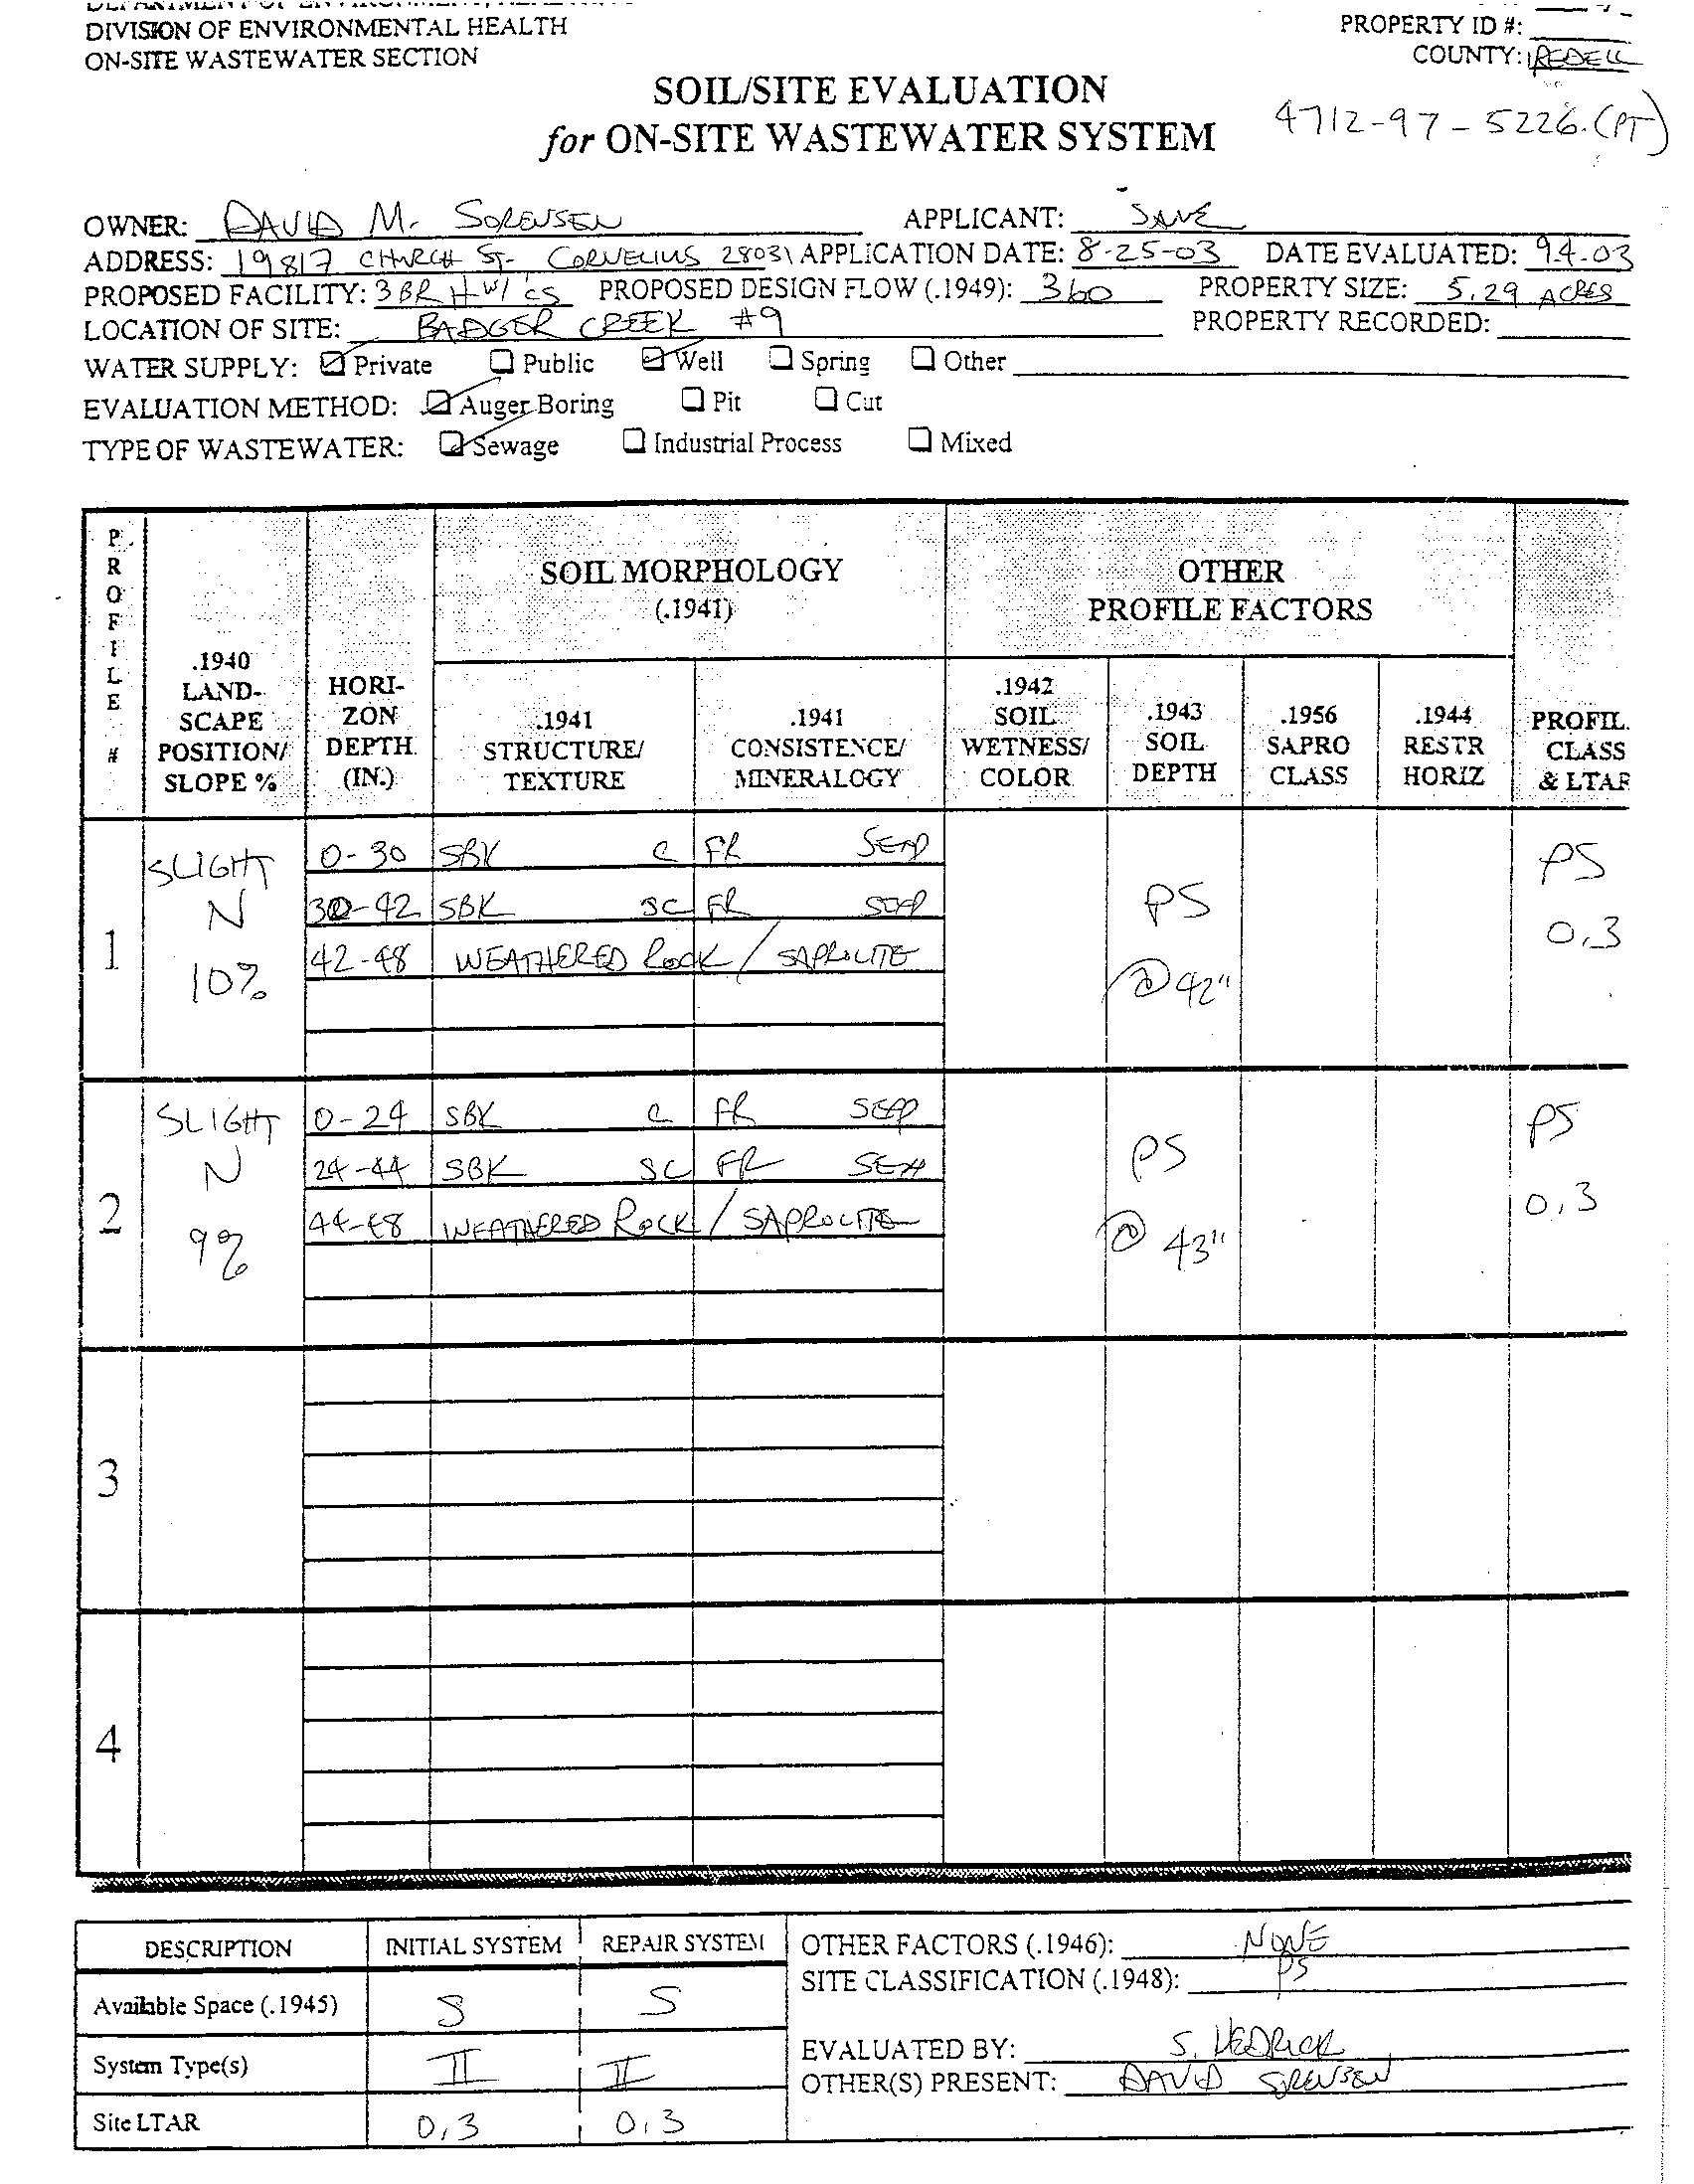 DIVISION OF ENVIRONMENTAL HEALTH
ON-SITE WASTEWATER SECTION
PROPERTY ID #:
COUNTY: IREDELL
SOIL/SITE EVALUATION
for ON-SITE WASTEWATER SYSTEM
4712-97-5226.(PT)
OWNER: DAVID M. SORENSEN APPLICANT: SAME
ADDRESS: 19817 CHURCH ST. CORNELIUS 28031 APPLICATION DATE: 8-25-03 DATE EVALUATED: 9.4.03
PROPOSED FACILITY: 3 BR H w/ cs PROPOSED DESIGN FLOW (.1949): 360 PROPERTY SIZE: 5.29 ACRES
LOCATION OF SITE: BADGER CREEK #9 PROPERTY RECORDED:
WATER SUPPLY: ☑ Private ☐ Public ☑ Well ☐ Spring ☐ Other
EVALUATION METHOD: ☑ Auger Boring ☐ Pit ☐ Cut
TYPE OF WASTEWATER: ☑ Sewage ☐ Industrial Process ☐ Mixed
PROFILE #
.1940 LAND-SCAPE POSITION/ SLOPE %
HORI-ZON DEPTH (IN.)
SOIL MORPHOLOGY
(.1941)
.1941 STRUCTURE/ TEXTURE
.1941 CONSISTENCE/ MINERALOGY
OTHER
PROFILE FACTORS
.1942 SOIL WETNESS/ COLOR
.1943 SOIL DEPTH
.1956 SAPRO CLASS
.1944 RESTR HORIZ
PROFIL. CLASS & LTAR
1
SLIGHT
N
10%
0-30 SBK C FR SEXP
30-42 SBK SC FR SEXP
42-48 WEATHERED ROCK / SAPROLITE
PS
@ 42"
PS
0.3
2
SLIGHT
N
9%
0-24 SBK C FR SEXP
24-44 SBK SC FR
44-48 WEATHERED ROCK / SAPROLITE
PS
@ 43"
PS
0.3
3
4
DESCRIPTION INITIAL SYSTEM REPAIR SYSTEM
Available Space (.1945) S S
System Type(s) II II
Site LTAR 0.3 0.3
OTHER FACTORS (.1946): NONE
SITE CLASSIFICATION (.1948): PS
EVALUATED BY: S. HEDRICK
OTHER(S) PRESENT: DAVID SORENSEN